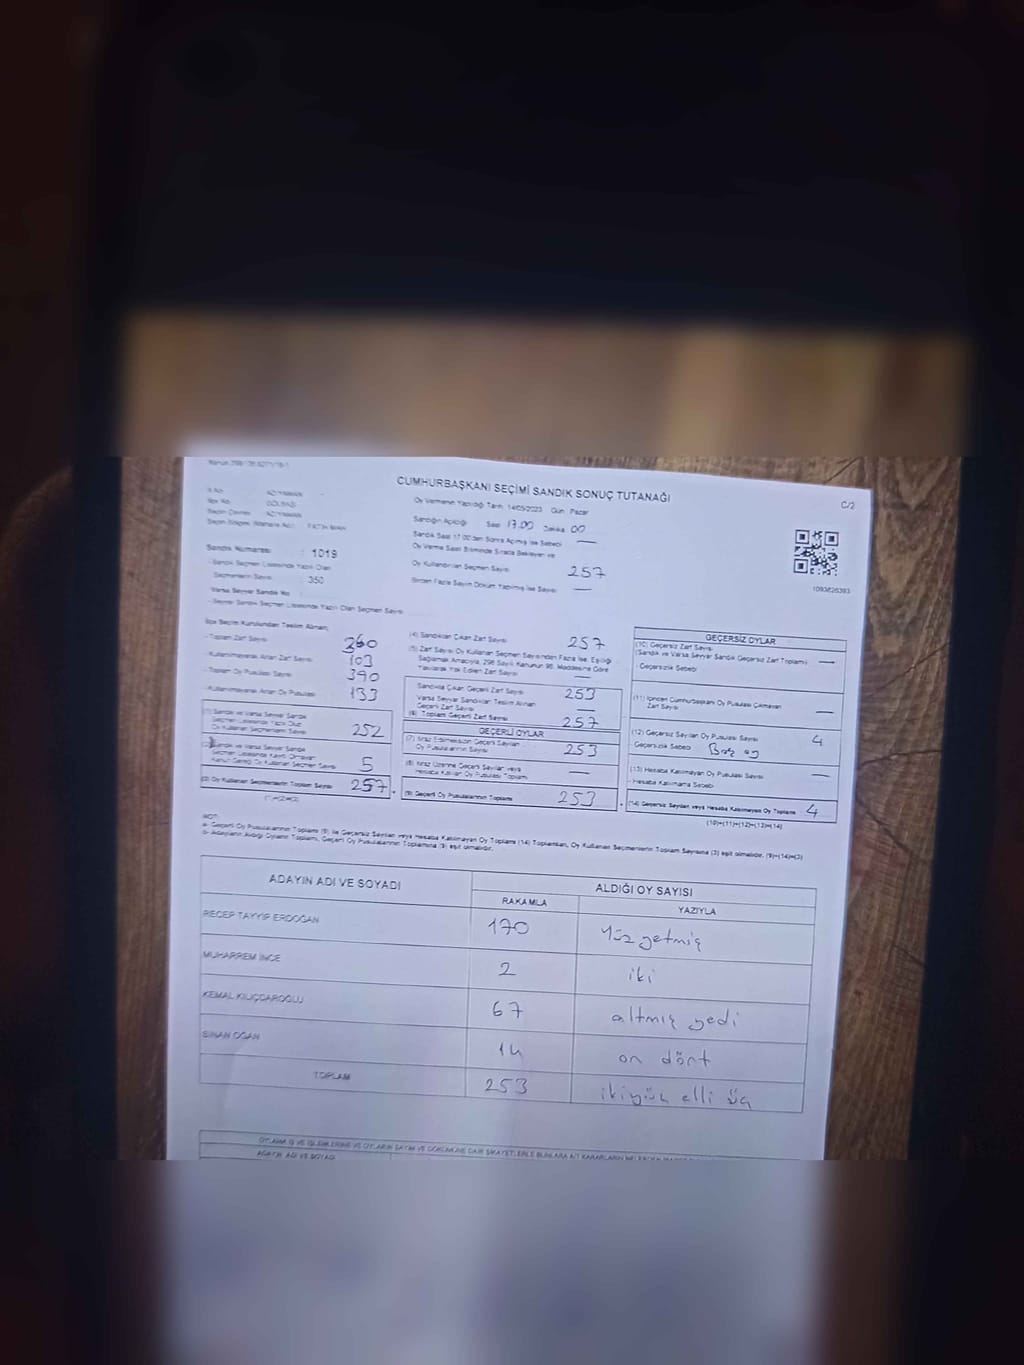 CUMHURBAŞKANI SEÇİMİ SANDIK SONUÇ TUTANAĞI
C/2
Oy Vermenin Yapıldığı Tarih 14/05/2023 Gün Pazar
İl Adı ADIYAMAN
İlçe Adı GÖLBAŞI
Seçim Çevresi ADIYAMAN
Sandığın Açıldığı Saat 17.00 Dakika 00
Sandık Saat 17.00'den Sonra Açılmış İse Sebebi —
Oy Verme Saati Bitiminde Sırada Bekleyen ve
Oy Kullandırılan Seçmen Sayısı 257
Birden Fazla Sayım Döküm Yapılmış İse Sayısı —
1093826393
Sandık Numarası : 1019
- Sandık Seçmen Listesinde Yazılı Olan
Seçmenlerin Sayısı : 350
- Varsa Seyyar Sandık No :
- Seyyar Sandık Seçmen Listesinde Yazılı Olan Seçmen Sayısı
İlçe Seçim Kurulundan Teslim Alınan;
- Toplam Zarf Sayısı 360
- Kullanılmayarak Artan Zarf Sayısı 103
- Toplam Oy Pusulası Sayısı 390
- Kullanılmayarak Artan Oy Pusulası 133
(1) Sandık ve Varsa Seyyar Sandık
Seçmen Listesinde Yazılı Olup
Oy Kullanan Seçmenlerin Sayısı 252
(2) Sandık ve Varsa Seyyar Sandık
Seçmen Listesinde Kayıtlı Olmayan
Kanun Gereği Oy Kullanan Seçmen Sayısı 5
(3) Oy Kullanan Seçmenlerin Toplam Sayısı 257
(1)+(2)=(3)
(4) Sandıktan Çıkan Zarf Sayısı 257
(5) Zarf Sayısı Oy Kullanan Seçmen Sayısından Fazla İse, Eşitliği
Sağlamak Amacıyla, 298 Sayılı Kanunun 98. Maddesine Göre
Yakılarak Yok Edilen Zarf Sayısı —
Sandıkta Çıkan Geçerli Zarf Sayısı 253
Varsa Seyyar Sandıktan Teslim Alınan
Geçerli Zarf Sayısı —
(6) Toplam Geçerli Zarf Sayısı 257
GEÇERLİ OYLAR
(7) İtiraz Edilmeksizin Geçerli Sayılan
Oy Pusulalarının Sayısı 253
(8) İtiraz Üzerine Geçerli Sayılan veya
Hesaba Katılan Oy Pusulası Toplamı —
(9) Geçerli Oy Pusulalarının Toplamı 253
GEÇERSİZ OYLAR
(10) Geçersiz Zarf Sayısı
(Sandık ve Varsa Seyyar Sandık Geçersiz Zarf Toplamı) —
- Geçersizlik Sebebi
(11) İçinden Cumhurbaşkanı Oy Pusulası Çıkmayan
Zarf Sayısı —
(12) Geçersiz Sayılan Oy Pusulası Sayısı 4
Geçersizlik Sebebi Boş oy
(13) Hesaba Katılmayan Oy Pusulası Sayısı —
- Hesaba Katılmama Sebebi
(14) Geçersiz Sayılan veya Hesaba Katılmayan Oy Toplamı 4
(10)+(11)+(12)+(13)=(14)
NOT:
a- Geçerli Oy Pusulalarının Toplamı (9) ile Geçersiz Sayılan veya Hesaba Katılmayan Oy Toplamı (14) Toplamları, Oy Kullanan Seçmenlerin Toplam Sayısına (3) eşit olmalıdır. (9)+(14)=(3)
b- Adayların Aldığı Oyların Toplamı, Geçerli Oy Pusulalarının Toplamına (9) eşit olmalıdır.
ADAYIN ADI VE SOYADI ALDIĞI OY SAYISI
RAKAMLA YAZIYLA
RECEP TAYYİP ERDOĞAN 170 Yüz yetmiş
MUHARREM İNCE 2 iki
KEMAL KILIÇDAROĞLU 67 altmış yedi
SİNAN OĞAN 14 on dört
TOPLAM 253 ikiyüz elli üç
ADAYIN ADI VE SOYADI